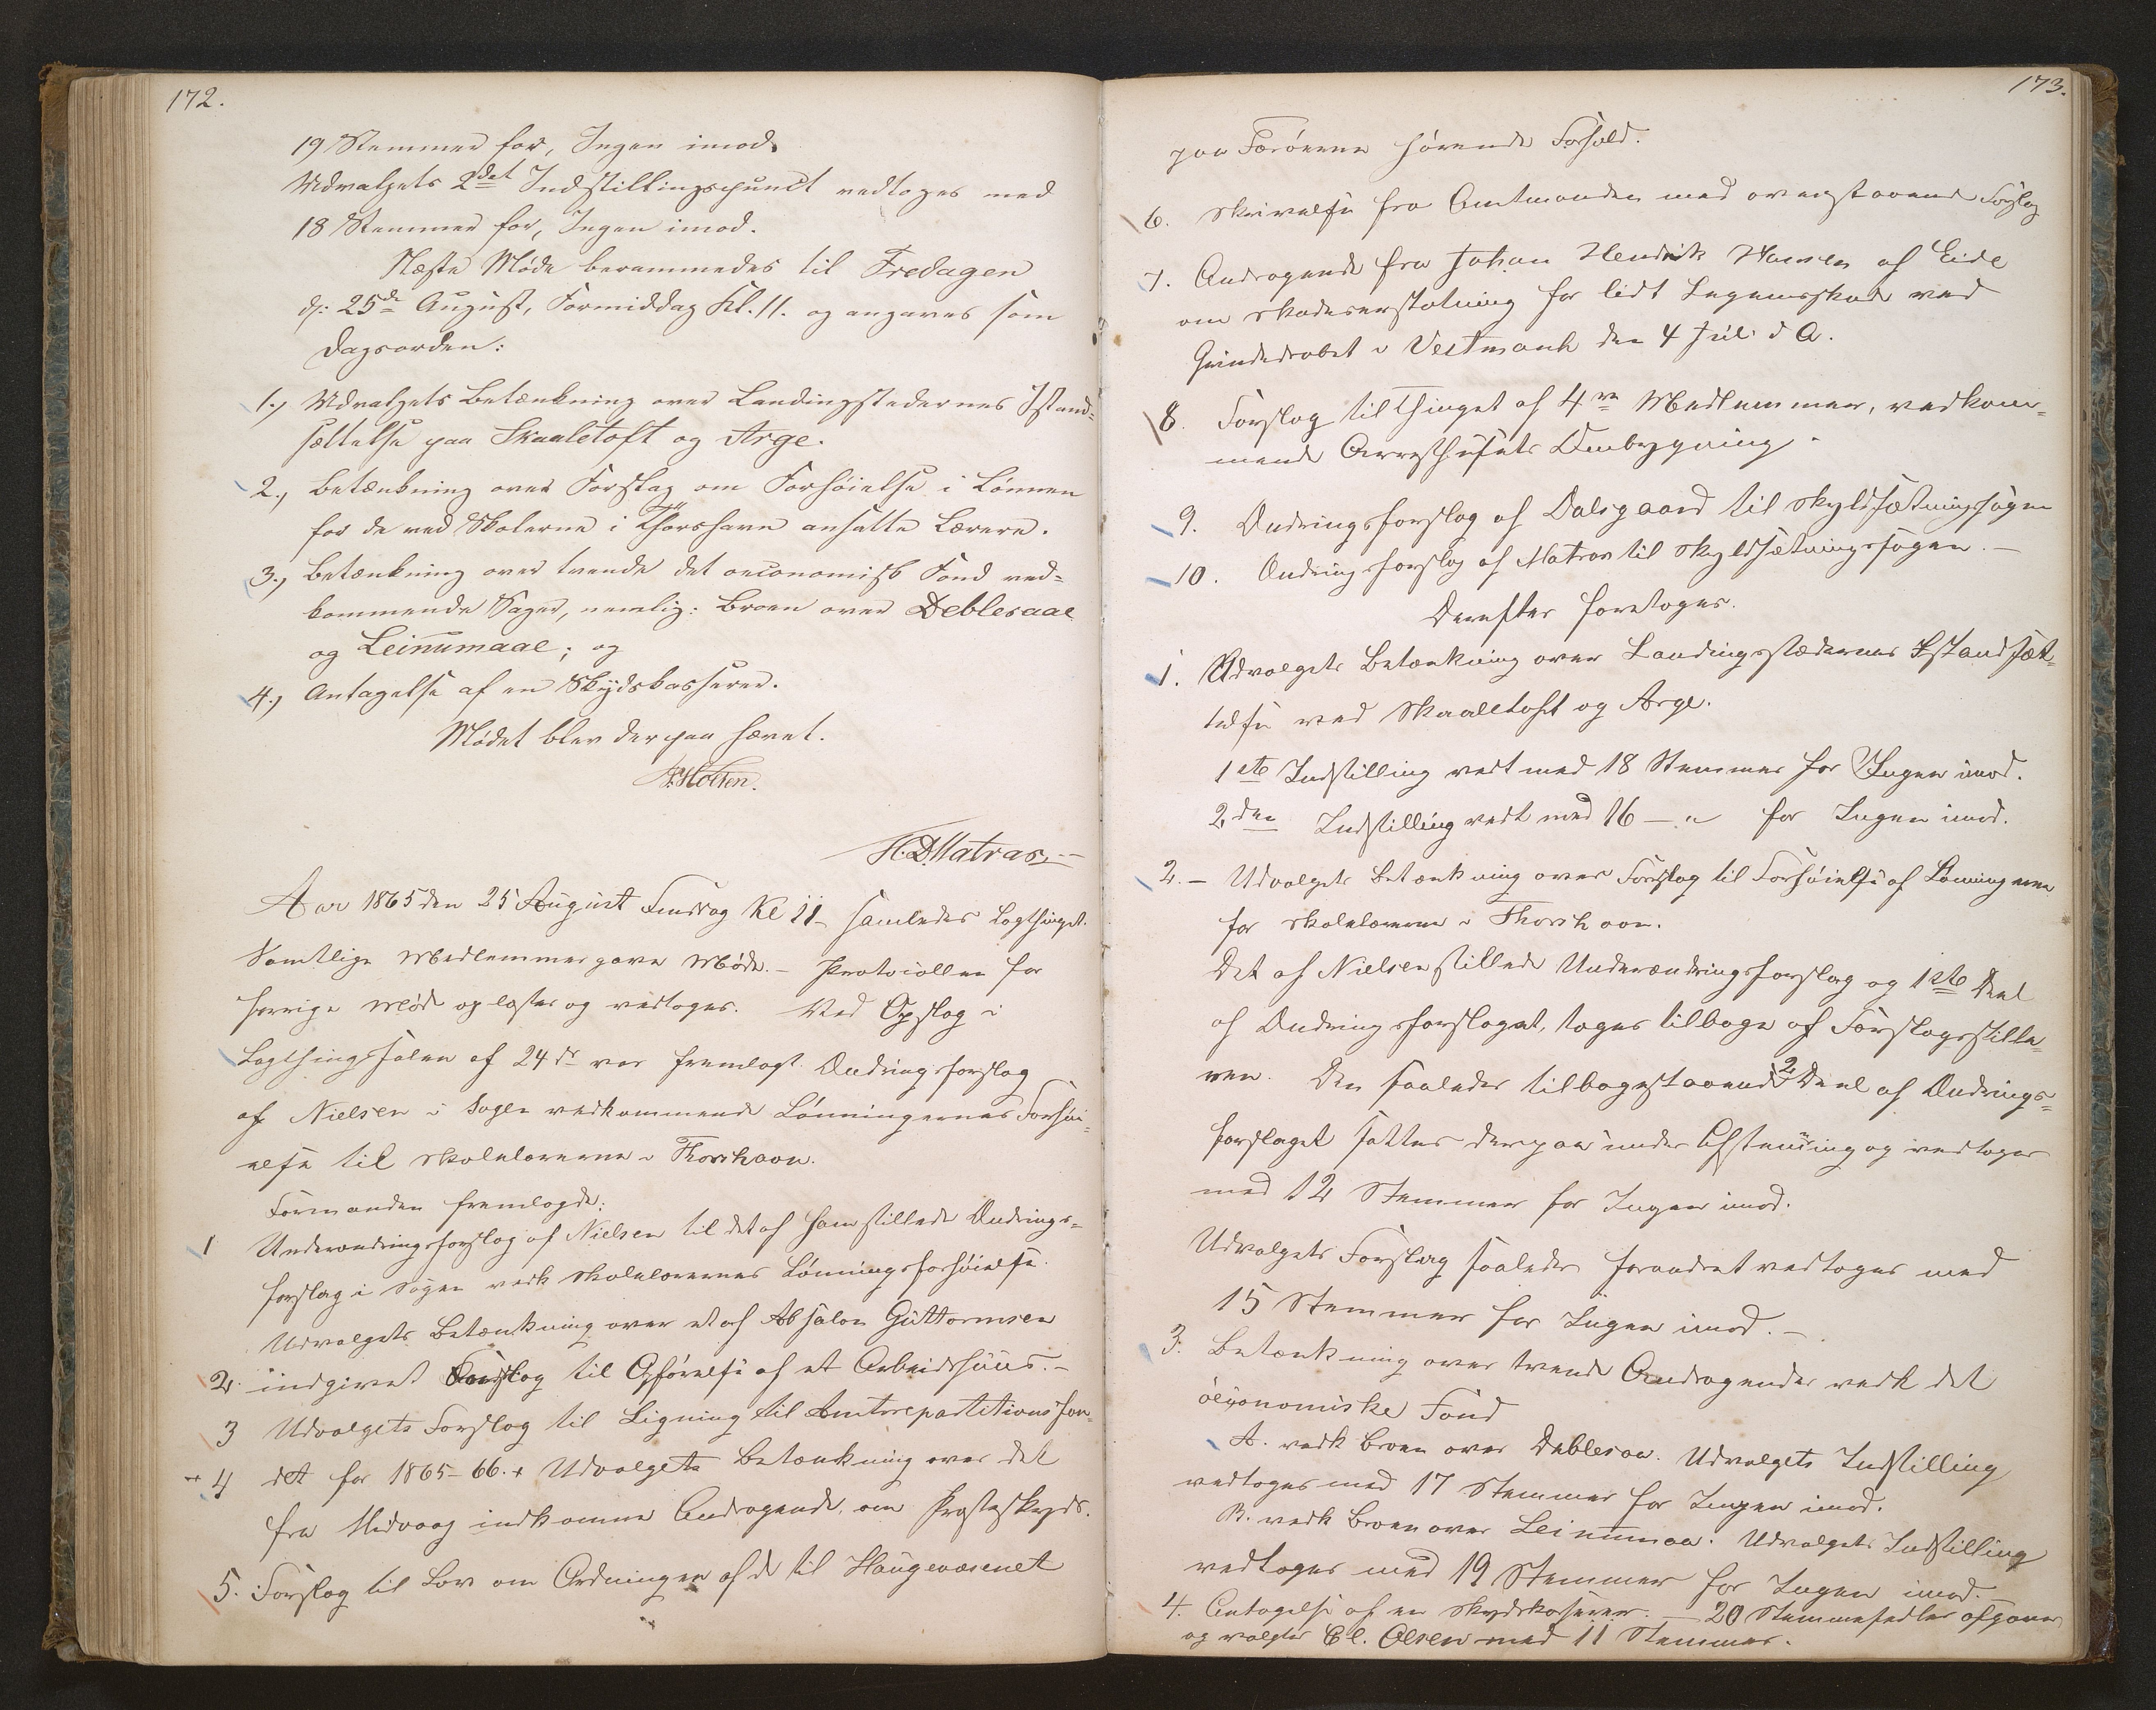 172.
19 Stemmer for, Ingen imod.
Udvalgets 2det Indstillingspunct vedtoges med
18 Stemmer for, Ingen imod.
Næste Møde berammedes til Fredagen
d: 25de August, Formiddag Kl. 11. og angaves som
Dagsorden:
1., Udvalgets Betænkning over Landingsstedernes Istand=
sættelse paa Skaaletoft og Arge.
2., Betænkning over Forslag om Forhøielse i Lønnen
for de ved Skolerne i Thorshavn ansatte Lærere.
3., Betænkning over tvende det oeconomisk Fond ved=
kommende Sager, nemlig: Broen over Deblesaae
og Leinumaae; og
4., Antagelse af en Skydskasserer.
Mødet blev derpaa hævet.
Holten.
H.D. Matras.
Aar 1865 den 25 August Fredag Kl 11 samledes Lagthinget.
Samtlige Medlemmer gave Møde. – Protocollen for
forrige Møde oplæstes og vedtoges. Ved Opslag i
Lagthingssalen af 24de var fremlagt Ændringsforslag
af Nielsen i Sagen vedkommende Lønningernes Forhøi=
else til Skolelærerne i Thorshavn.
Formanden fremlagde:
1 Underændringsforslag af Nielsen til det af ham stillede Ændrings=
forslag i Sagen vedk Skolelærernes Lønningsforhøielse.
Udvalgets Betænkning over et af Absalon Guttormsen
2. indgivet Forslag til Opførelse af et Arbeidshuus. –
3 Udvalgets Forslag til Ligning til Amtsrepartitionsfon=
4 det for 1865-66. + Udvalgets Betænkning over det
fra Midvaag indkomne Andragende om Præsteskyds.
5. Forslag til Lov om Ordningen af de til Haugevæsenet
173.
paa Færøerne hørende Forhold.
6. Skrivelse fra Amtmanden med ovenstaaende Forslag
7. Andragende fra Johan Hendrik Hansen af Eide
om Skadeserstatning for lidt Legemsskade ved
Grindedrabet i Vestmanh den 4 Juli d A.
8. Forslag til Thinget af 4re Medlemmer, vedkom=
mende Arresthusets Ombygning.
9. Ændringsforslag af Dalsgaard til Skyldsætningssagen
10. Ændringsforslag af Matras til Skyldsætningssagen. –
Derefter foretoges.
1. Udvalgets Betænkning over Landingsstædernes Istandsæt=
telse ved Skaaletoft og Arge.
1ste Indstilling vedt med 18 Stemmer for Ingen imod.
2den Indstilling vedt med 16 – " for Ingen imod.
2. – Udvalgets Betænkning over Forslag til Forhøielse af Lønningerne
for Skolelærerne i Thorshavn.
Det af Nielsen stillede Underændringsforslag og 1ste Deel
af Ændringsforslaget, toges tilbage af Forslagsstille=
ren. Den saaledes tilbagestaaende 2 Deel af Ændrings=
forslaget sattes derpaa under Afstemning og vedtoges
med 12 Stemmer for Ingen imod.
Udvalgets Forslag saaledes forandret vedtoges med
15 Stemmer for Ingen imod. –
3. Betænkning over tvende Andragender vedk det
øeconomiske Fond
A. vedk Broen over Deblesaa. Udvalgets Indstilling
vedtoges med 17 Stemmer for Ingen imod.
B. vedk Broen over Leinumaa. Udvalgets Indstilling
vedtoges med 19 Stemmer for Ingen imod.
4. Antagelse af en Skydskasserer. – 20 Stemmesedler afgaves
og valgtes El. Olsen med 11 Stemmer.